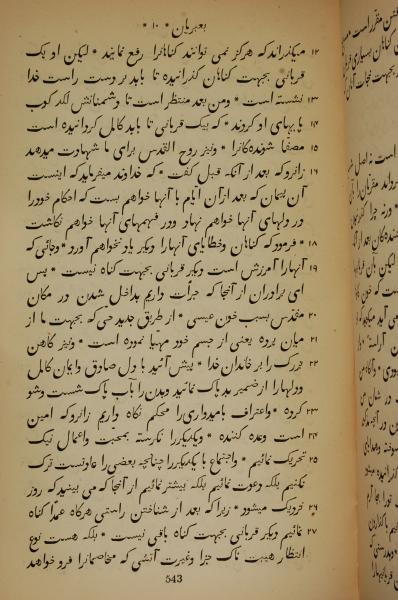 بعبریان * ۱۰ *
۱۲ میگذراند که هرگز نمی توانند گناهانرا رفع نمایند * لیکن او یک
قربانی بجهت گناهان گذرانیده تا باید بر دست راست خدا
۱۳ نشسته است * و من بعد منتظر است تا دشمنانش لگد کوب
۱۴ پایهای او گردند * که بیک قربانی تا باید کامل گردانیده است
۱۵ مصفا شونده‌گانرا * و نیز روح القدس برای ما شهادت میدهد
۱۶ زانرو که بعد از آنکه قبل گفت * که خداوند میفرماید که اینست
آن پیمان که بعد از آن ایام با آنها خواهم بست که احکام خود را
در دلهای آنها خواهم نهاد و در فهمهای آنها خواهم نگاشت
۱۸ * فرمود که گناهان و خطایای آنها را دیگر یاد نخواهم آورد * و جائی که
۱۹ آنها را آمرزش است دیگر قربانی بجهت گناه نیست * پس
ای برادران از آنجا که جرأت داریم بداخل شدن در مکان
۲۰ مقدس بسبب خون عیسی * از طریق جدید حی که بجهت ما از
۲۱ میان پرده یعنی از جسم خود مهیا نموده است * و نیز کاهن
۲۲ بزرگ را بر خاندان خدا * پیش آئیم با دل صادق و ایمان کامل
و دلها را از ضمیر بد پاک نمائید و بدن را بآب پاک شست و شو
۲۳ کرده * و اعتراف بامیدواری را محکم نگاه داریم زانرو که امین
۲۴ است وعده کننده * و یکدیگر را نگرسته بمحبت و اعمال نیک
۲۵ تحریک نمائیم * و اجتماع با یکدیگر را چنانچه بعضی را عادتست ترک
نکنیم بلکه دعوت نمائیم بلکه بیشتر نمائیم از آنجا که می بینید که روز
۲۶ نزدیک میشود * زیرا که بعد از شناختن راستی هرگاه عمدا گناه
۲۷ نمائیم دیگر قربانی بجهت گناه باقی نیست * بلکه هست نوع
انتظار هیبت ناک جزا و غیرت آتشی که مخاصمانرا فرو خواهد
543